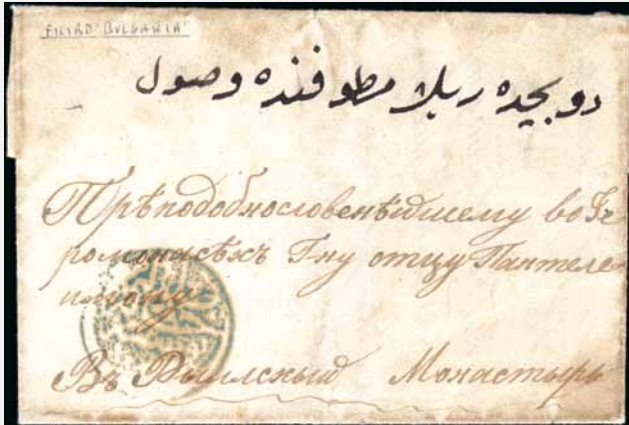 FILIRD 'BULGARIA'
دوبجه‌ده ريلا مطوفنده وصول
Прѣподобнословенѣйшему во Іе
ромонасѣхъ Гну отцу Пантеле
имону
Въ Рылский Монастырь